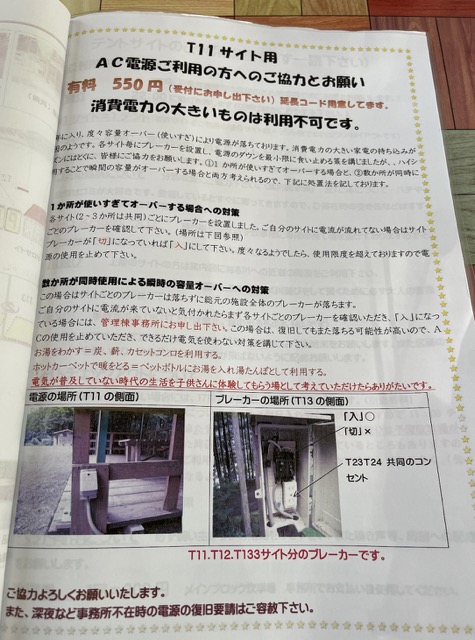 T11 サイト用
AC電源ご利用の方へのご協力とお願い
有料 550円 (受付にお申し出下さい) 延長コード用意してます。
消費電力の大きいものは利用不可です。
年に入り、度々容量オーバー(使いすぎ)により電源が落ちております。消費電力の大きい家電の持ち込みが
因のようです。各サイト毎にブレーカーを設置し、電源のダウンを最小限に食い止める策を講じましたが、ハイシ
ズンにはとくに、皆様にご協力をお願いします。①1か所が使いすぎてオーバーする場合と、②数か所が同時に
用することで瞬間の容量がオーバーする場合と両方考えられるので、下記に処置法を記しております。
1か所が使いすぎてオーバーする場合への対策
各サイト(2~3か所は共同)ごとにブレーカーを設置しました。ご自分のサイトに電流が流れてない場合はサイト
ごとのブレーカーを確認して下さい。(場所は下図参照)
ブレーカーが「切」になっていれば「入」にして下さい。度々なるようでしたら、使用限度を超えておりますので電
源の使用を止めて下さい。
数か所が同時使用による瞬時の容量オーバーへの対策
この場合はサイトごとのブレーカーは落ちずに総元の施設全体のブレーカーが落ちます。
ご自分のサイトに電流が来ていないと気付かれたらまず各サイトごとのブレーカーを確認いただき、「入」になっ
ている場合には、管理棟事務所にお申し出下さい。この場合は、復旧してもまた落ちる可能性が高いので、A
Cの使用を止めていただき、できるだけ電気を使わない対策を講じて下さい。
お湯をわかす=炭、薪、カセットコンロを利用する。
ホットカーペットで暖をとる=ペットボトルにお湯を入れ湯たんぽとして利用する。
電気が普及していない時代の生活を子供さんに体験してもらう場として考えていただけたらありがたいです。
電源の場所(T11の側面)
ブレーカーの場所(T13の側面)
「入」○
「切」×
T23T24 共同のコン
セント
T11.T12.T133サイト分のブレーカーです。
ご協力よろしくお願いいたします。
また、深夜など事務所不在時の電源の復旧要請はご容赦下さい。